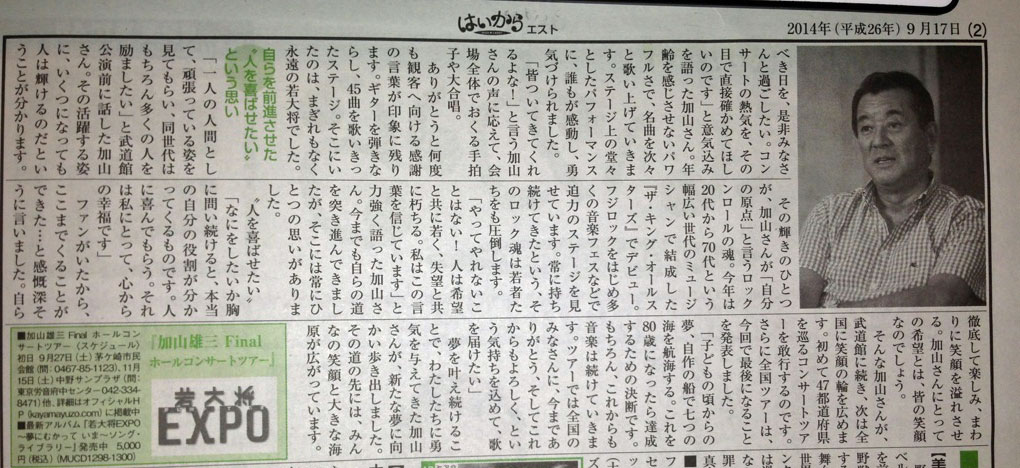 はいから
エスト
2014年(平成26年)9月17日 (2)
べき日を、是非みなさ
んと過ごしたい。コン
サートの熱気を、その
目で直接確かめてほし
いのです」と意気込み
を語った加山さん。年
齢を感じさせないパワ
フルさで、名曲を次々
と歌い上げていきま
す。ステージ上の堂々
としたパフォーマンス
に、誰もが感動し、勇
気づけられました。
「皆ついてきてくれ
るよな!」と言う加山
さんの声に応えて、会
場全体でおくる手拍
子や大合唱。
ありがとうと何度
も観客へ向ける感謝
の言葉が印象に残り
ます。ギターを弾きな
らし、45曲を歌いきっ
たステージ。そこにい
たのは、まぎれもなく
永遠の若大将でした。
自らを前進させた
〝人を喜ばせたい〟
という思い
「一人の人間とし
て、頑張っている姿を
見てもらい、同世代は
もちろん多くの人を
励ましたい」と武道館
公演前に話した加山
さん。その活躍する姿
に、いくつになっても
人は輝けるのだとい
うことが分かります。
その輝きのひとつ
が、加山さんが「自分
の原点」と言うロック
ンロールの魂。今年は
20代から70代という
幅広い世代のミュージ
シャンで結成した
『ザ・キング・オールス
ターズ』でデビュー。
フジロックをはじめ多
くの音楽フェスなどで
迫力のステージを見
せています。常に持ち
続けてきたという、そ
のロック魂は若者た
ちをも圧倒します。
「やってやれないこ
とはない!人は希望
と共に若く、失望と共
に朽ちる。私はこの言
葉を信じています」と
力強く語った加山さ
ん。今までも自らの道
を突き進んできました
たが、そこには常にひ
とつの思いがありま
した。
〝人を喜ばせたい〟
「なにをしたいか胸
に問い続けると、本当
の自分の役割が分か
ってくるものです。人
に喜んでもらう。それ
は私にとって、心から
の幸福です」
ファンがいたから、
ここまでくることが
できた…と感慨深そ
うに言いました。自ら
徹底して楽しみ、まわ
りに笑顔を溢れさせ
る。加山さんにとって
の希望とは、皆の笑顔
なのでしょう。
そんな加山さんが、
武道館に続き、次は全
国に笑顔の輪を広めま
す。初めて47都道府県
を巡るコンサートツア
ーを敢行するのです。
さらに全国ツアーは、
今回で最後になること
を発表しました。
「子どもの頃からの
夢、自作の船で七つの
海を航海する。これを
80歳になったら達成
するための決断です。
もちろん、これからも
音楽は続けていきま
す。ツアーでは全国の
みなさんに、今まであ
りがとう、そしてこれ
からもよろしく、とい
う気持ちを込めて、歌
を届けたい」
夢を叶え続けるこ
とで、わたしたちに勇
気を与えてきた加山
さんが、新たな夢に向
かい歩き出しました。
その道の先には、みん
なの笑顔と大きな海
原が広がっています。
『加山雄三 Final
ホールコンサートツアー』
若大将
EXPO
■加山雄三 Final ホールコン
サートツアー(スケジュール)
初日 9月27日(土)茅ヶ崎市民
会館(問・0467-85-1123)、11月
15日(土)中野サンプラザ(問・
東京労音府中センター042-334-
8471)他、詳細はオフィシャルH
P(kayamayuzo.com)に掲載中
■最新アルバム『若大将EXPO
〜夢にむかって いま〜ソング・
ライブラリー』発売中 5,000
円(税込)(MUCD1298-1300)